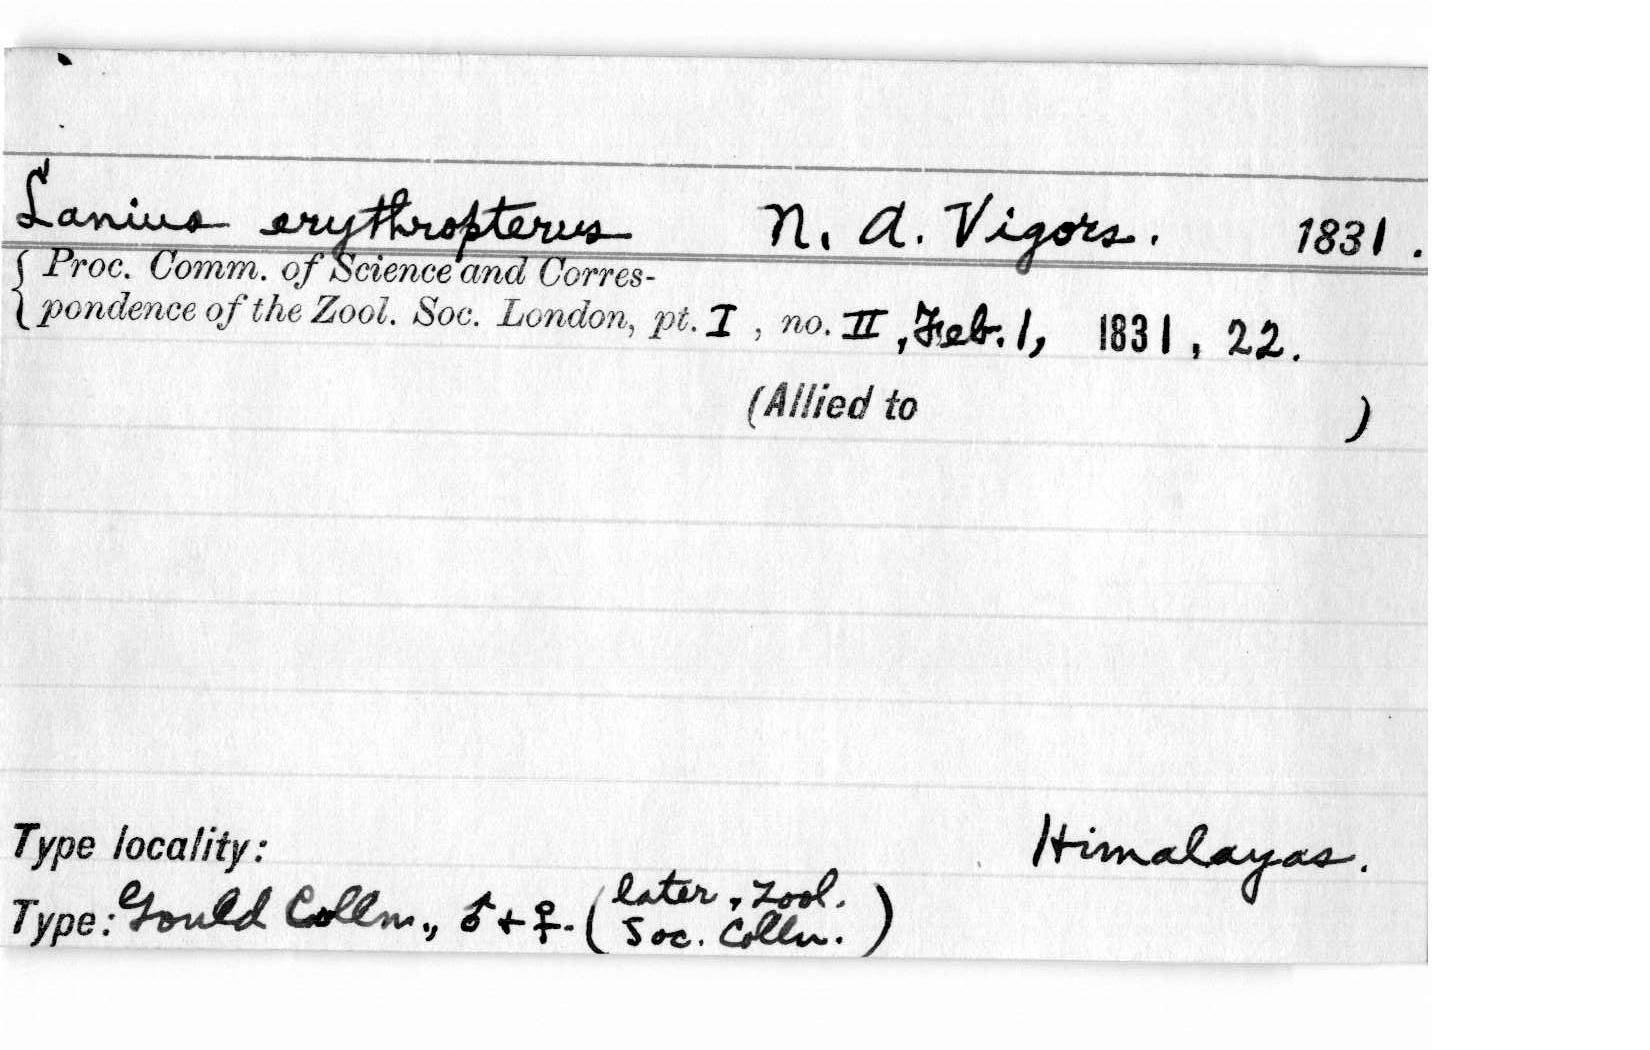 Lanius erythropterus N. A. Vigors. 1831.
Proc. Comm. of Science and Corres-
pondence of the Zool. Soc. London, pt. I, no. II, Feb. 1, 1831, 22.
(Allied to )
Type locality: Himalayas.
Type: Gould Colln., ♂ + ♀. (later, Zool.
Soc. Colln.)